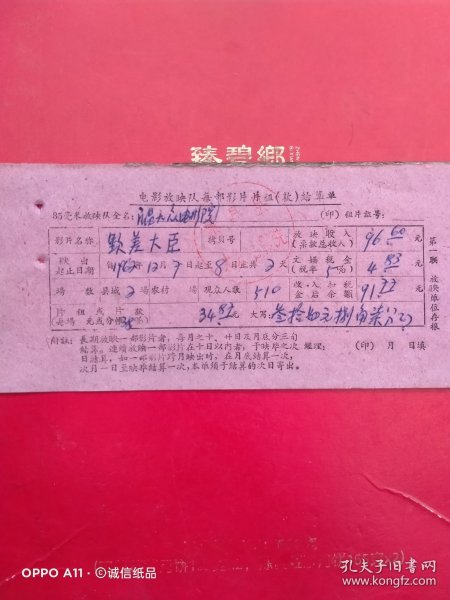 臻碧鄉
电影放映队每部影片片租(款)结算单
35毫米放映队全名: 大众电影院 (印) 租片証号:
影片名称 钦差大臣 拷贝号 放映收入(系款总收入) 96.60 元
映出起止日期 1962年12月7日起至8日止共2天 文娱税金(税率5%) 4.83 元
場数 县城2場农村 場 观众人数 510 收入扣税金后余额 91.77 元
片租或片款 34.87元 大写: 叁拾肆元捌角柒分
第一联 放映单位存根
附註: 長期放映一部影片者,每月之十、廿日及月底分三旬
结算。连續放映一部影片在十日以内者,于映毕之次 經理: (印) 月 日填
日结算,如一部影片跨月映出时,在月底结算一次,
次月一日至映毕结算一次,本单须于结算的次日寄出。
OPPO A11 · ©诚信纸品
孔夫子旧书网
kongfz.com